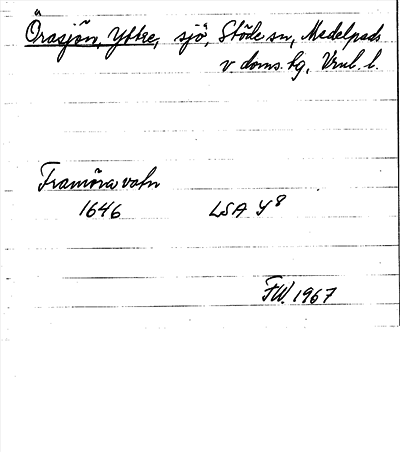 Örasjön, Yttre, sjö, Stöde sn, Medelpads
v. doms. tg, Vrnl. l.
Framöra vatn
1646 LSA Y8
FW. 1967